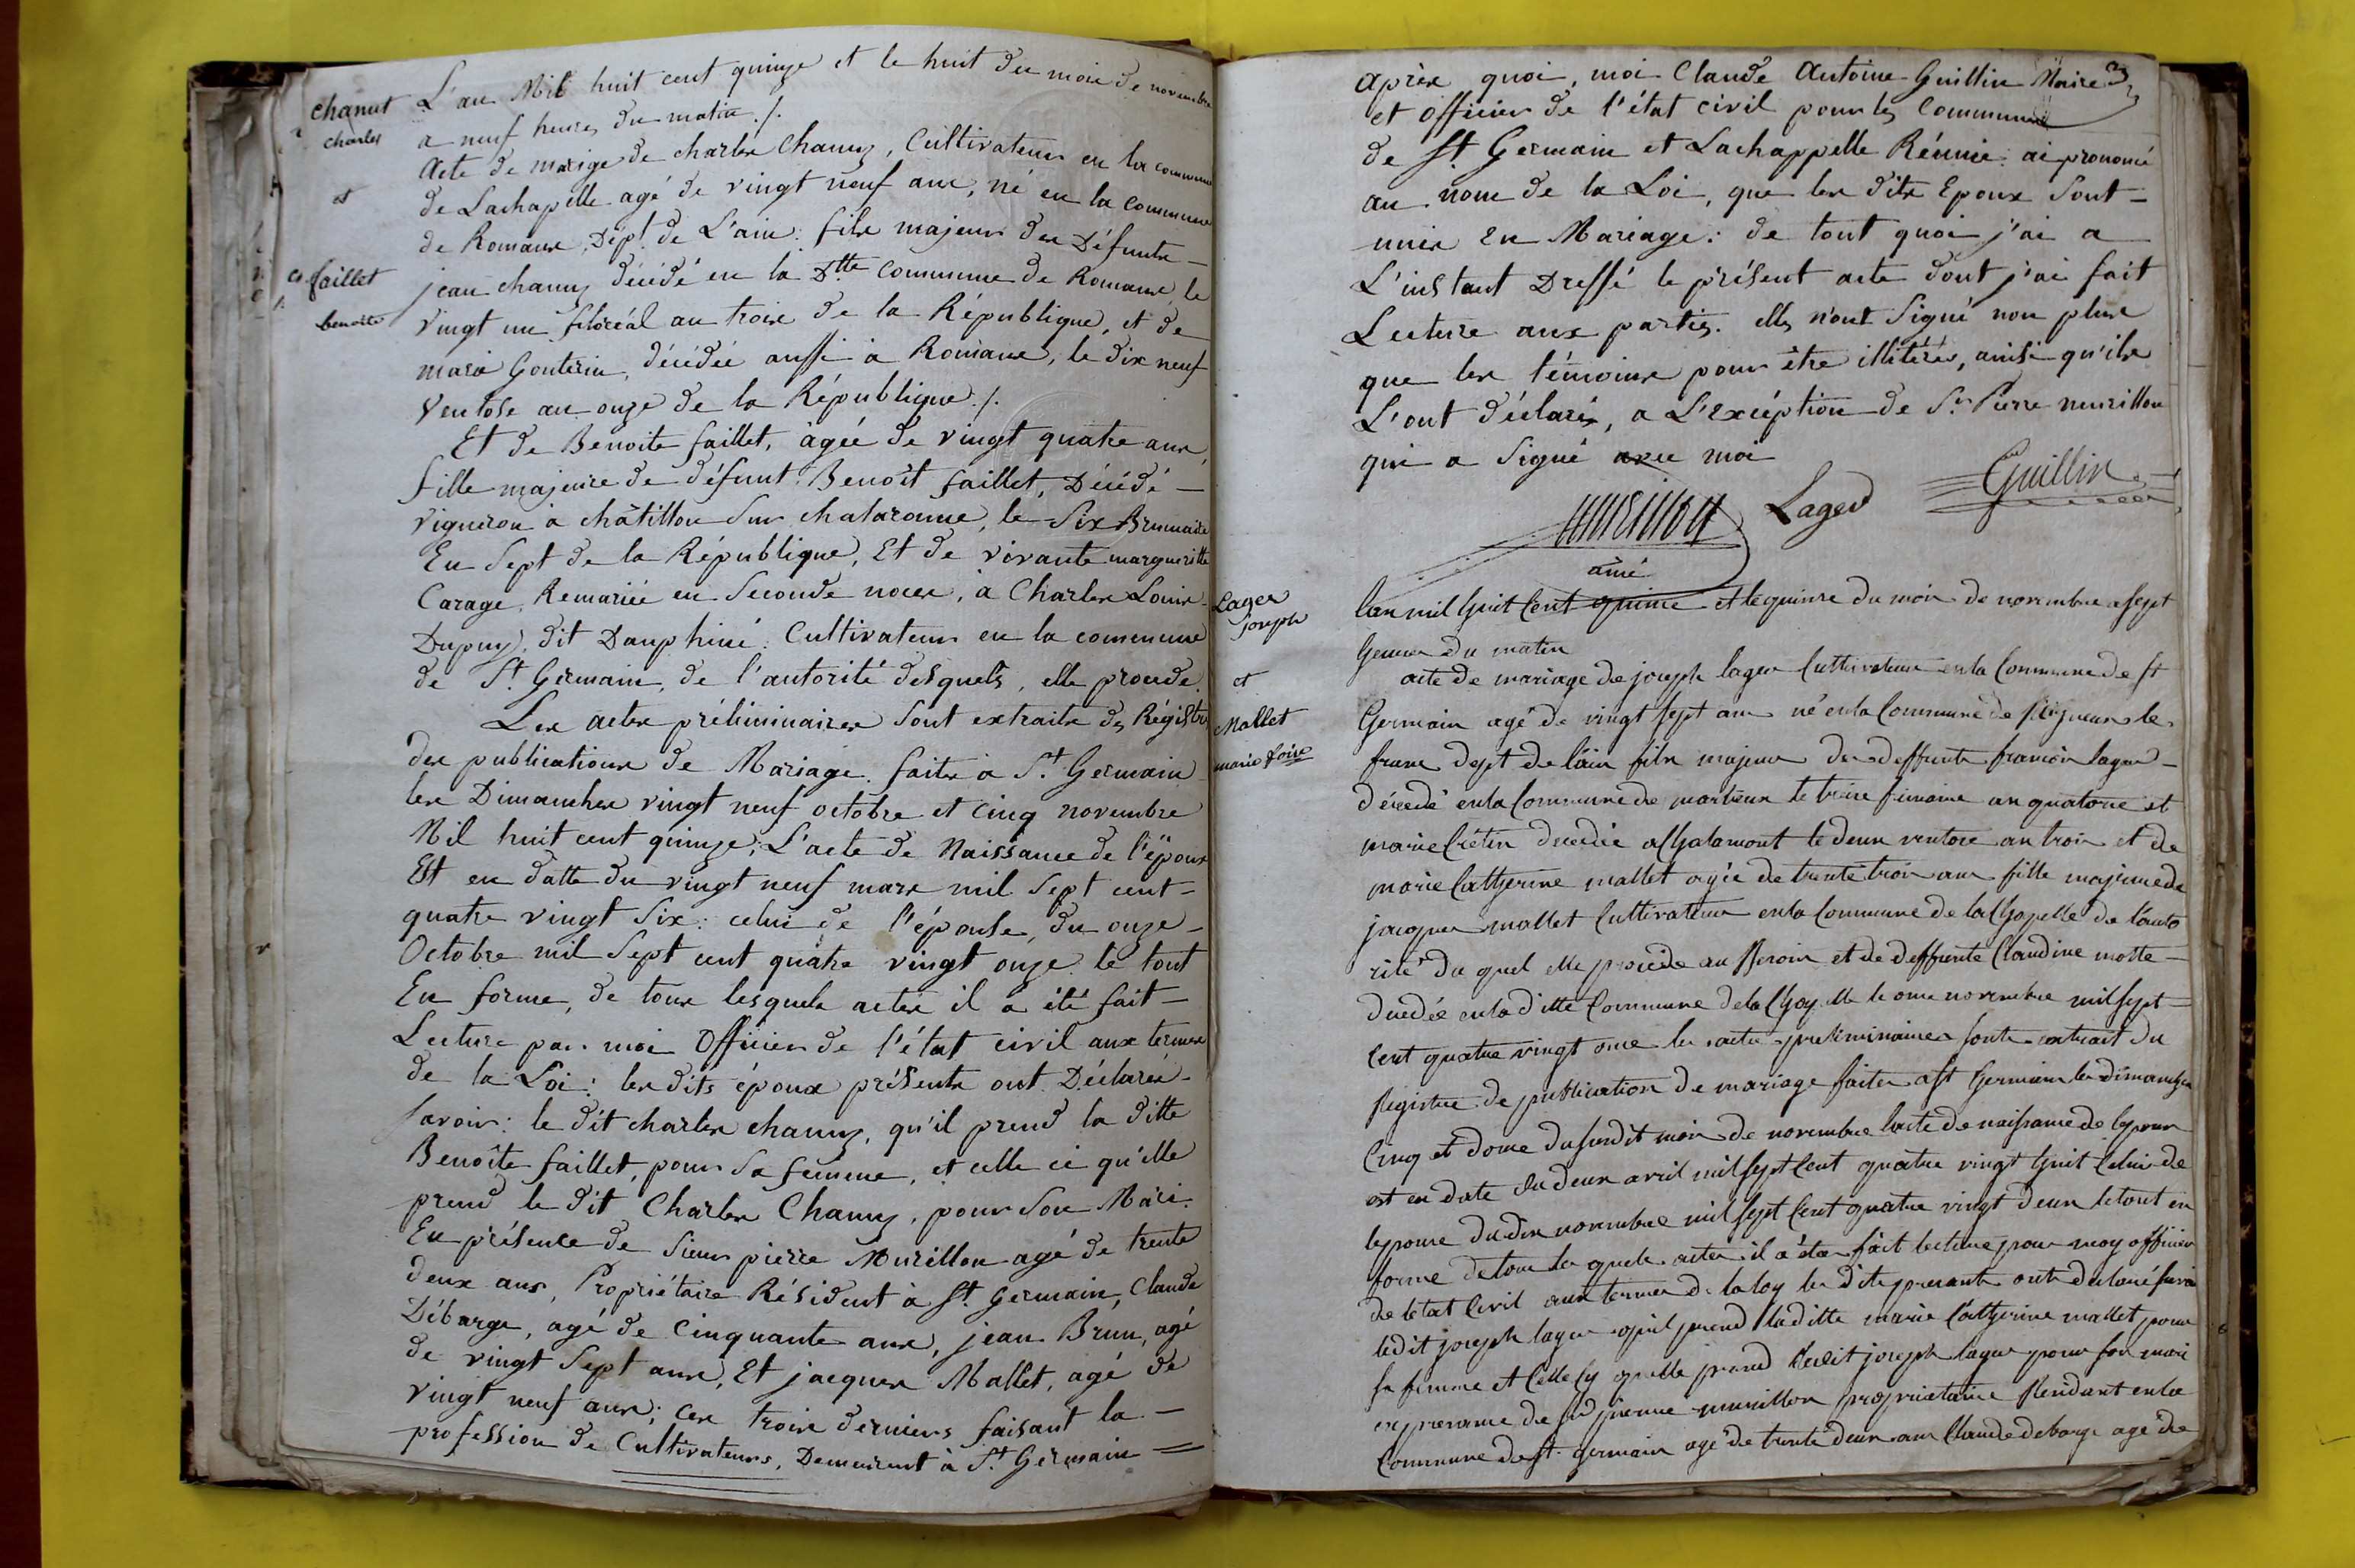 L'an Mil huit cent quinze et le huit du mois de novembre
chanut
charles
a neuf heures du matin ./.
Acte de mariage de charles Chanuy, Cultivateur en la commune
et
de Lachapelle agé de vingt neuf ans, né en la commune
de Romans, Dépt. de L'ain: fils majeur des Défunts
faillet
benoite
jean chanuy décédé en la Dtte commune de Romans, le
vingt un floréal an trois de la République, et de
marie Gonterin, décédée aussi à Romans, le dix neuf
Ventose an onze de la République ./.
Et de Benoite faillet, agée de vingt quatre ans,
fille majeure de défunt Benoît faillet, Décédé
vigneron à châtillon sur chalaronne, le six Brumaire
En sept de la République, Et de vivante margueritte
Carage, Remariée en seconde noces, à Charles Louis
Dupuy, dit Dauphiné. Cultivateur en la commune
de St. Germain, de l'autorité desquels, elle procede.
Les actes préliminaires sont extraits des Régistres
des publications de Mariage. faites à St. Germain
les Dimanches vingt neuf octobre et cinq novembre
Mil huit cent quinze; L'acte de Naissance de l'époux
Est en datte du vingt neuf mars mil sept cent
quatre vingt six: celui de l'épouse, du onze
Octobre mil sept cent quatre vingt onze. le tout
En forme, de tous lesquels actes il a été fait
Lecture par moi Officier de l'état civil aux termes
de la Loi: les dits époux présents ont Déclarés
savoir: le dit charles chanuy, qu'il prend la ditte
Benoîte faillet, pour sa femme, et celle ci qu'elle
prend le dit Charles Chanuy, pour son Mari.
En présence de sieur pierre Murillon agé de trente
deux ans, Propriétaire Résident à St. Germain, Claude
Débarge, agé de cinquante ans, jean Brun, agé
de vingt sept ans, Et jacques Mallet, agé de
vingt neuf ans; ces trois derniers faisant la
profession de Cultivateurs, Demeurant à St. Germain
après quoi, moi Claude Antoine Guillin Maire
et officier de l'état civil pour les communes
de St. Germain et Lachappelle Réunie. ai prononcé
au nom de la Loi, que les dits Epoux sont
unis En Mariage: de tout quoi j'ai a
L'instant Dressé le présent acte dont j'ai fait
Lecture aux parties. elles n'ont signé non plus
que les témoins pour être illitérés, ainsi qu'ils
L'ont déclarés, a L'exception de Sr. Pierre murillon
qui a signé avec moi
murillon Lager Guillin
ainé
Lager
joseph
et
Mallet
marie
lan mil huit cent quinze et le quinze du mois de novembre a sept
heures du matin
acte de mariage de joseph lager Cultivateur en la Commune de st
Germain agé de vingt sept ans né en la Commune de le
franc dept de lain fils majeur des deffunts francois lager
décédé en la Commune de marlieux le treize frimaire an quatorze et
marie Crétin decedée a Chalamont le deux ventose an trois et de
marie Catherine mallet agée de trente trois ans fille majeure de
jacques mallet Cultivateur en la Commune de la Chapelle de lauto
rité du quel elle procède au Besoin et de deffunte Claudine motte
decedée en la ditte Commune de la Chapelle le onze novembre mil sept
Cent quatre vingt onze les actes preliminaires sont extrait du
Registre de publication de mariage faites a st Germain les dimanches
Cinq et douze du susdit mois de novembre lacte de naissance de lepoux
est en date du deux avril mil sept Cent quatre vingt huit Celui de
lepouse du dix novembre mil sept Cent quatre vingt deux le tout en
forme de tous les quels actes il a été fait lecture par moy officier
de letat Civil aux termes de la loy les dits presents ont declaré savoir
ledit joseph lager quil prend laditte marie Catherine mallet pour
sa femme et Celle Cy quelle prend ledit joseph lager pour son mari
en presence de pierre murillon proprietaire Residant en la
Commune de st germain agé de trente deux ans Claude debarge agé de